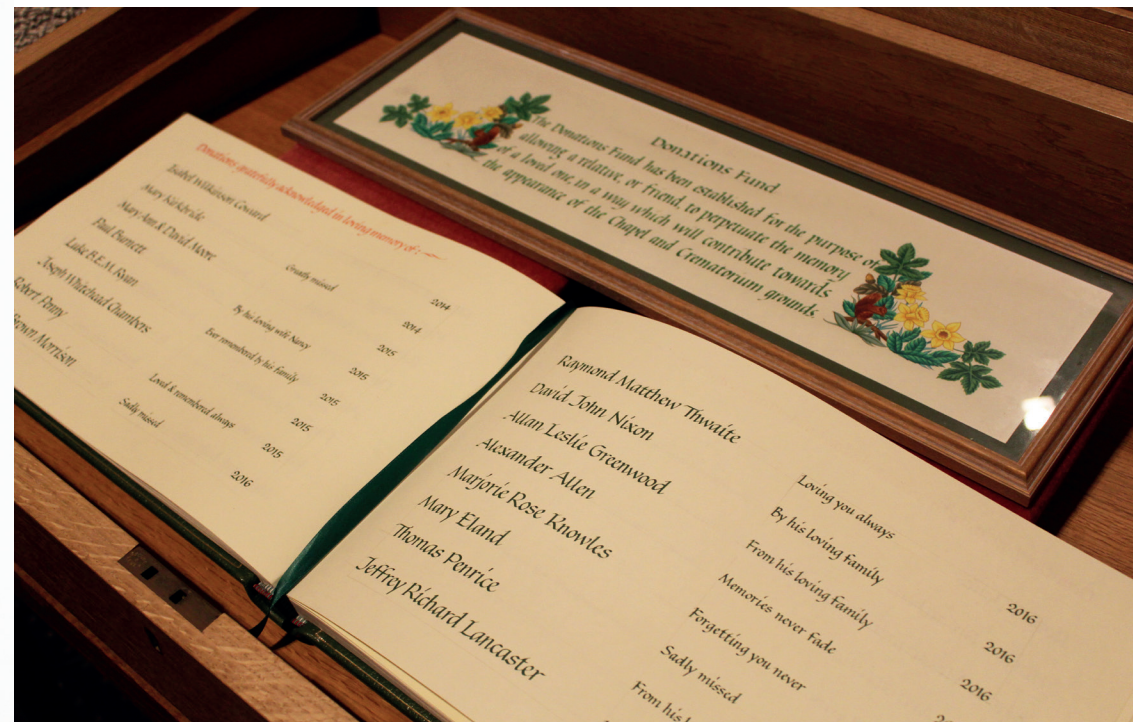 Donations Fund
The Donations Fund has been established for the purpose of
allowing a relative, or friend, to perpetuate the memory
of a loved one, in a way which will contribute towards
the appearance of the Chapel and Crematorium grounds.
Donations gratefully acknowledged in loving memory of :-
Isabel Wilkinson Coward 2014
Mary Kirkbride Greatly missed 2014
Mary Ann & David Moore 2015
Paul Burnett By his loving wife Nancy 2015
Luke B.E.M. Ryan Ever remembered by his family 2015
Joseph Whitehead Chambers 2015
Robert Penny Loved & remembered always 2015
Brown Morrison Sadly missed 2016
Raymond Matthew Thwaite Loving you always 2016
David John Nixon By his loving family 2016
Allan Leslie Greenwood From his loving family 2016
Alexander Allen Memories never fade
Marjorie Rose Knowles Forgetting you never
Mary Eland Sadly missed
Thomas Penrice From his
Jeffrey Richard Lancaster